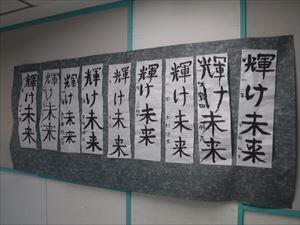 輝け未来
輝け未来
輝け未来
輝け未来
輝け未来
輝け未来
輝け未来
輝け未来
輝け未来